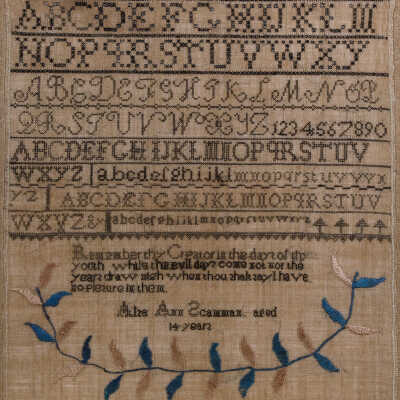 ABCDEFGHIJKLM
NOPQRSTUVWXY
ABCDEFGHIJKLMNOP
QRSTUVWXYZ 1234567890
ABCDEFGHIJKLMNOPQRSTUV
WXYZ abcdefghijklmnopqrstuvwx
yz ABCDEFGHIJKLMNOPQRSTUV
WXYZ& abcdefghijklmnopqrstuvwxyz
Remember thy Creator in the days of thy
youth while the evil days come not nor the
years draw nigh when thou shalt say I have
no plesure in them.
Ann Scamman aged
14 years